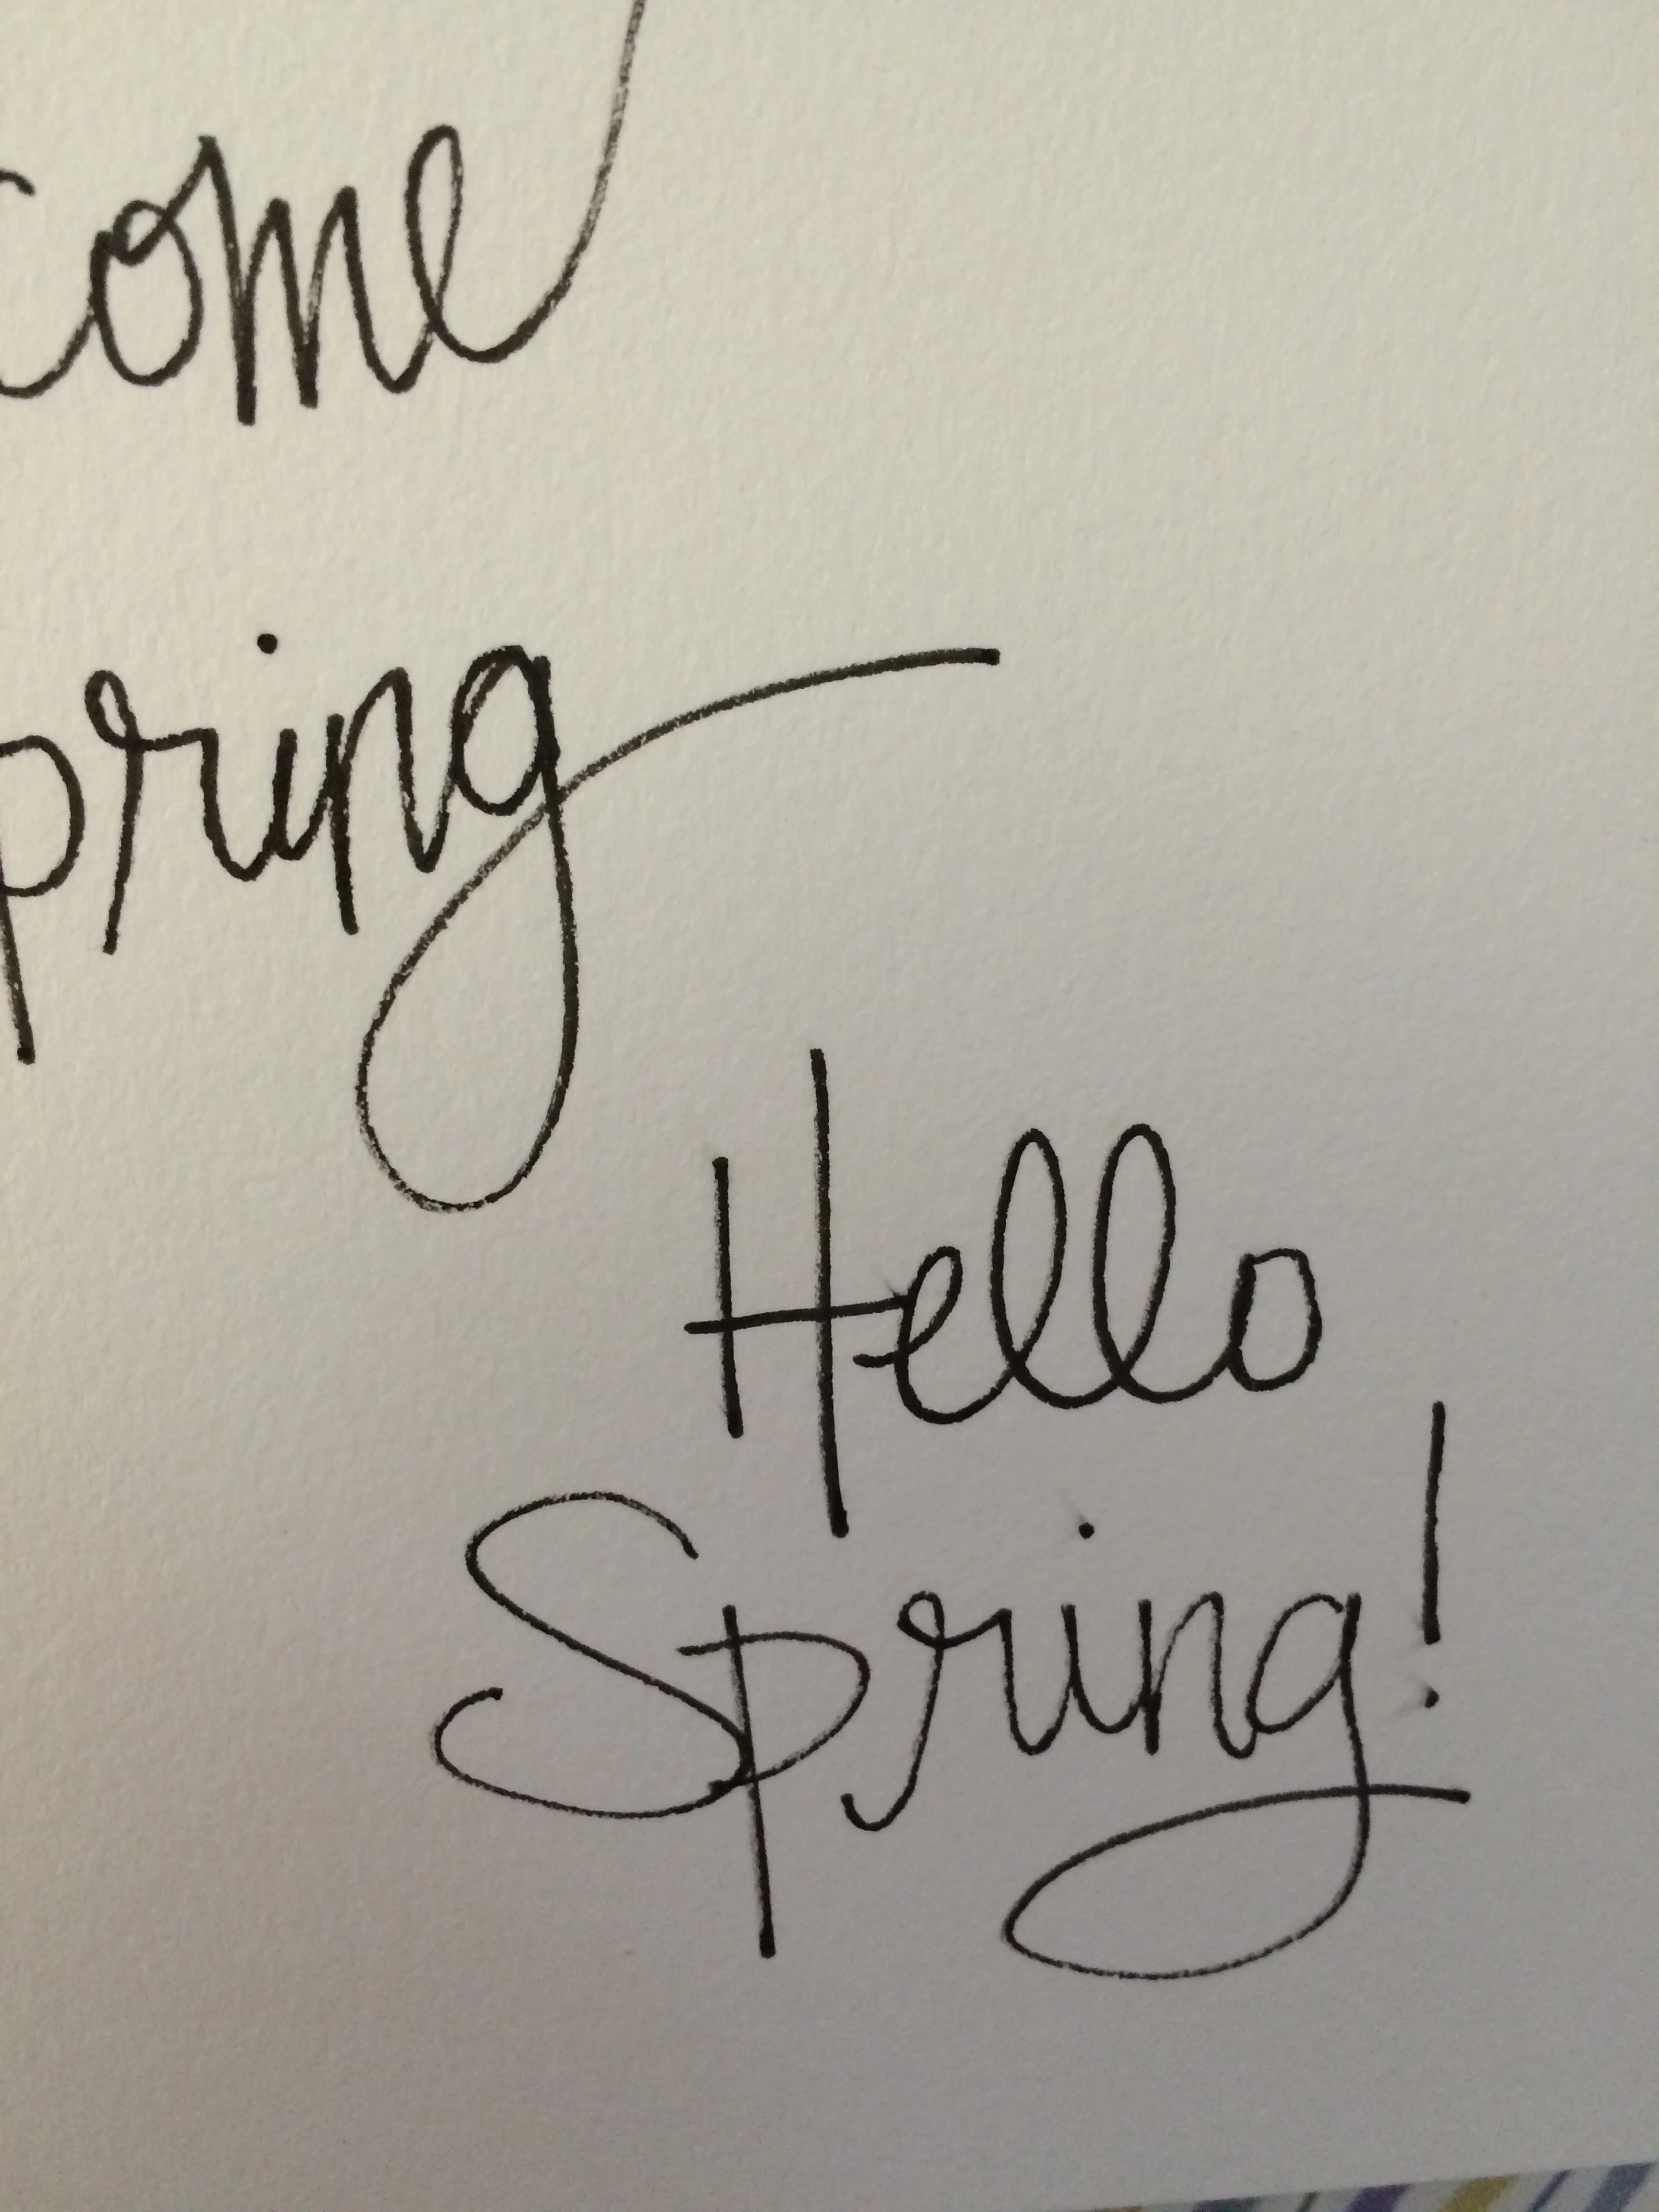 come
pring
Hello
Spring!